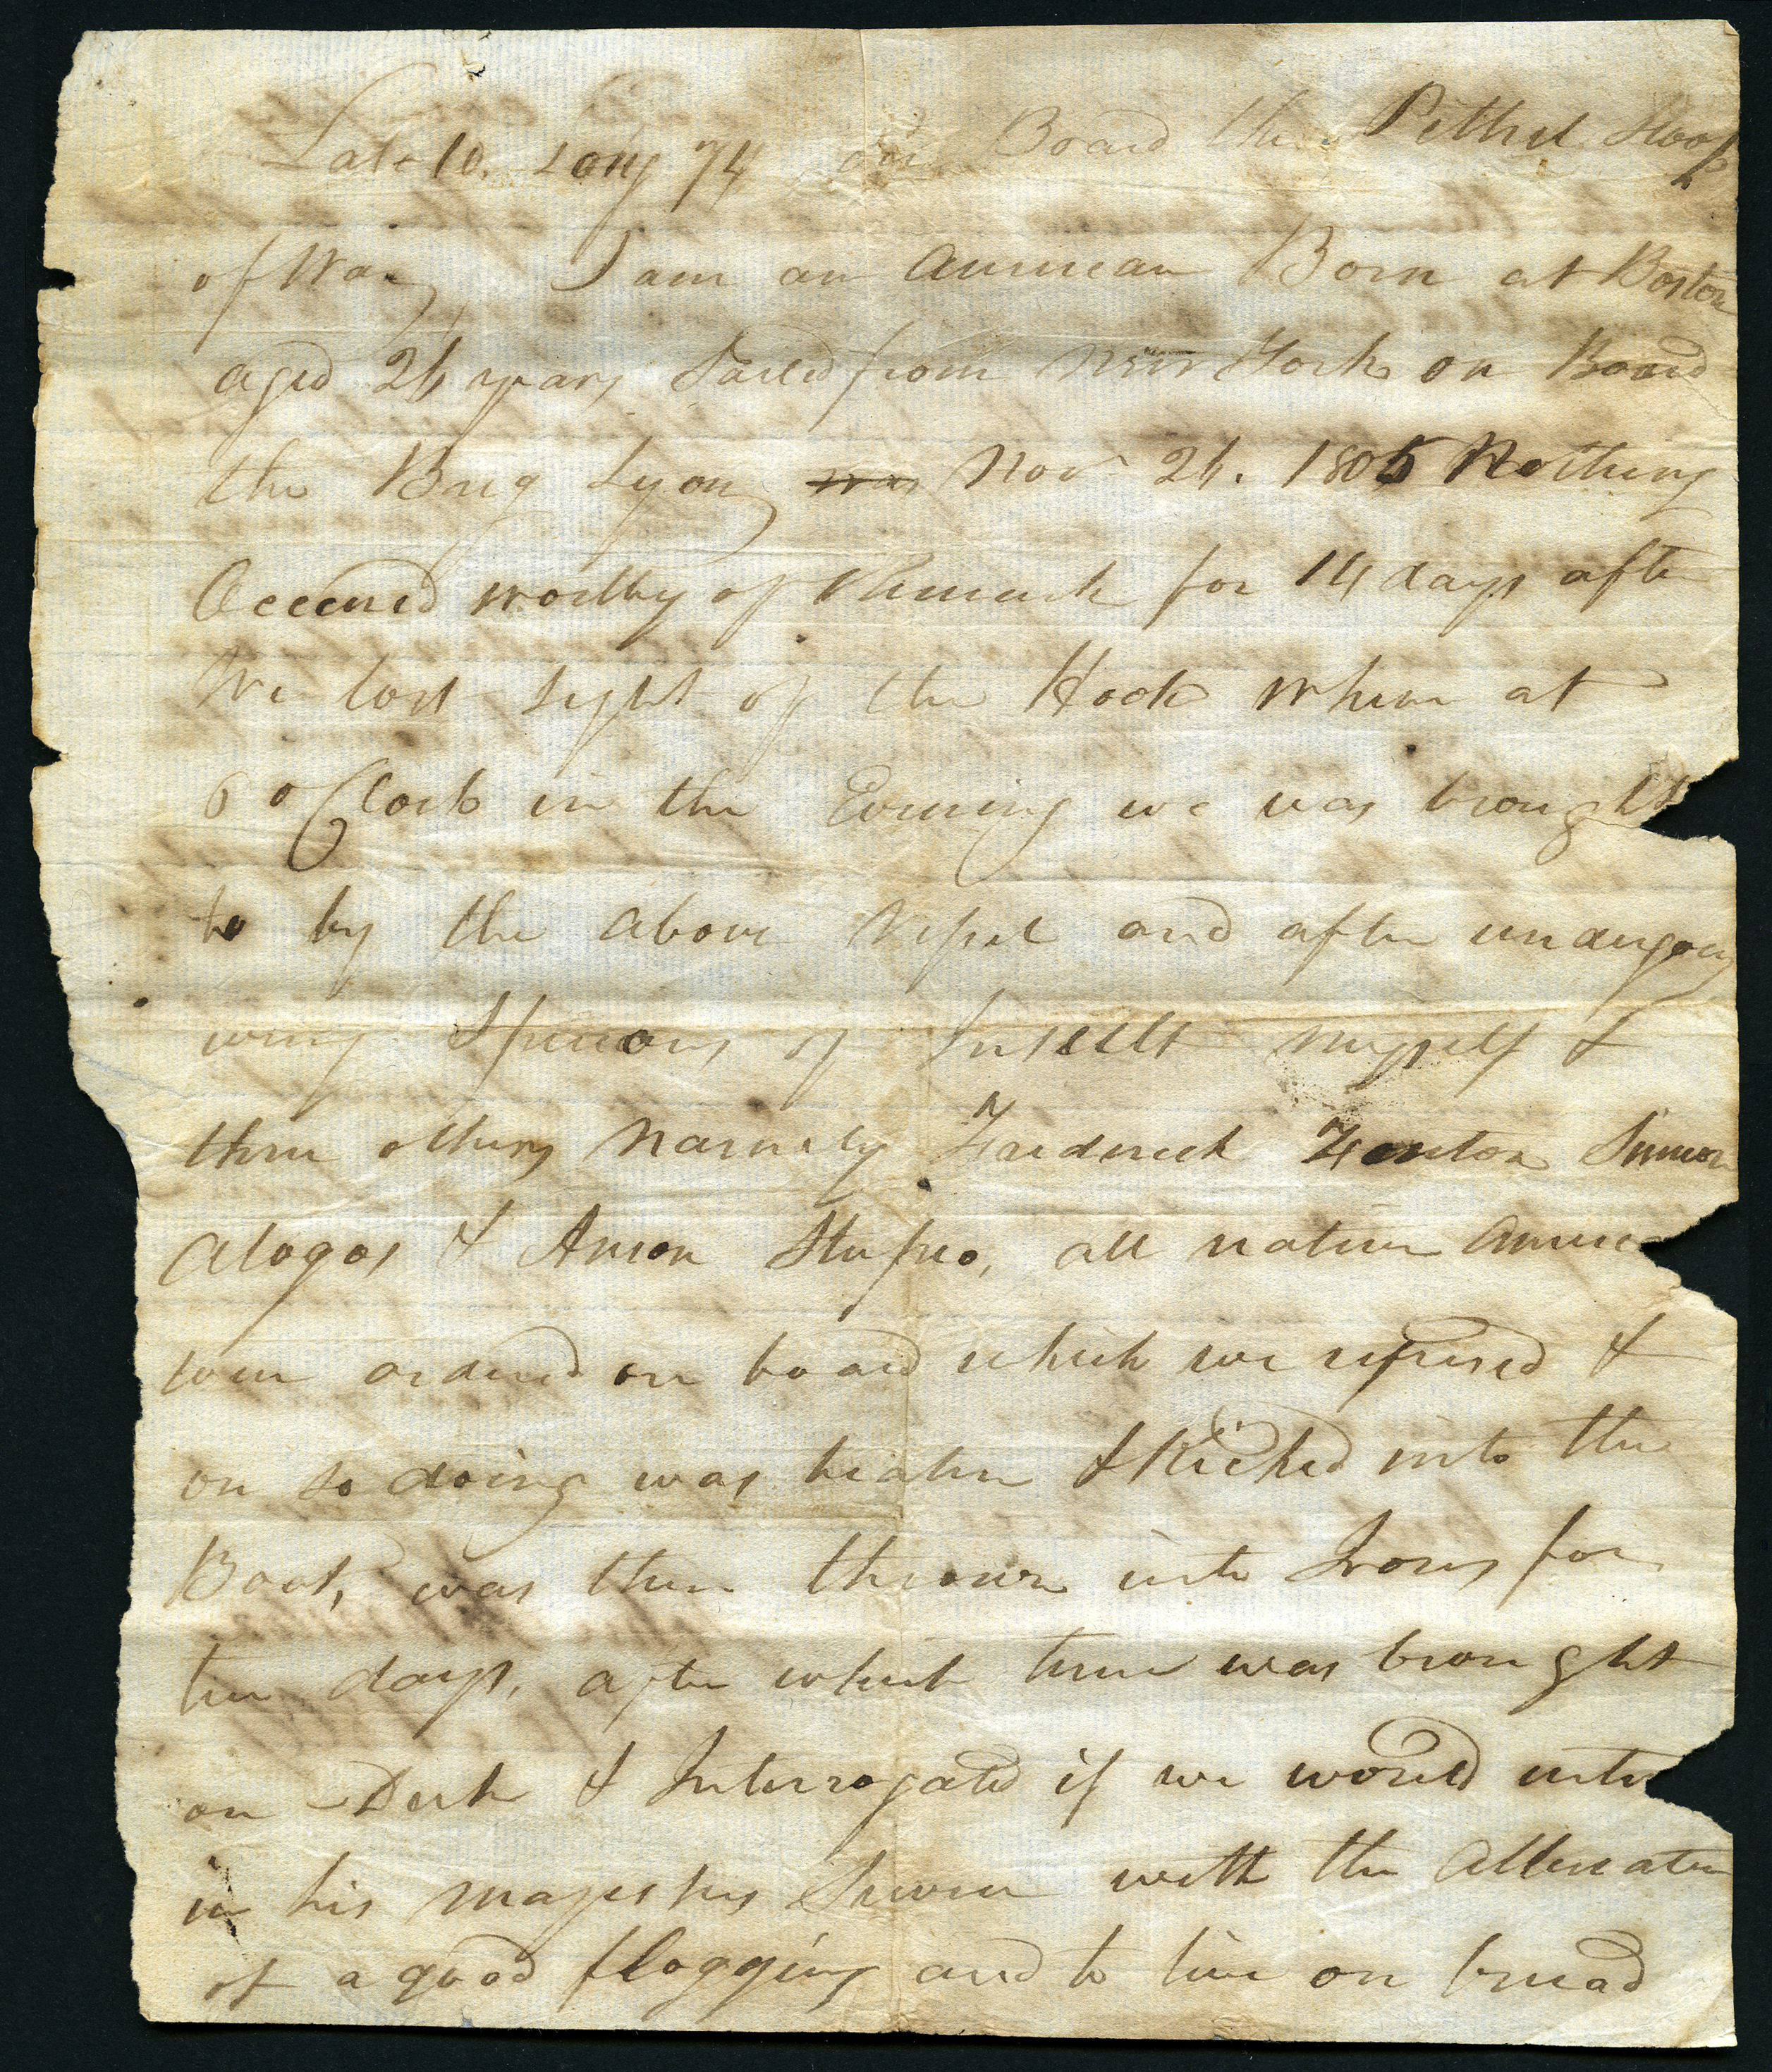 Lat 10. Long 74 on Board the Pethel Sloop
of War, I am an American Born at Boston
aged 26 years Sailed from New York on Board
the Brig Lyon, was Nov 26. 1805 Nothing
Occured worthy of Remark for 14 days after
We lost sight of the Hook when at
6 oClock in the Evening we was brought
to by the above Vessel and after undergoing
every Species of Insult myself &
three others Namely Fredrick Fenton Simeon
Alogos & Anson Stufro, all native Americ
were ordered on board which we refused &
on so doing was beaten & Kicked into the
Boat, was then thrown into Irons for
ten days, after which time was brought
on Deck & Interrogated if we would enter
in his majestys Service with the Alternative
of a good flogging and to live on bread